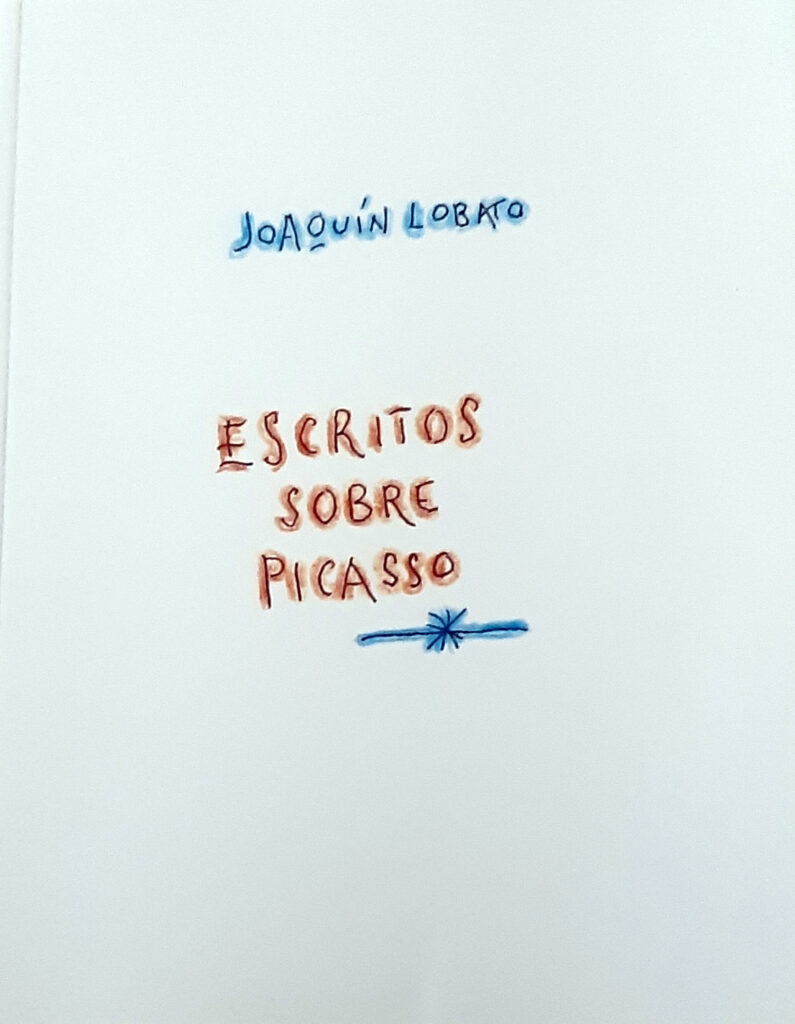 JOAQUÍN LOBATO
ESCRITOS
SOBRE
PICASSO